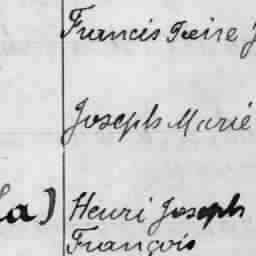 Francis Peire J
Joseph Marié
la) Henri Joseph
François